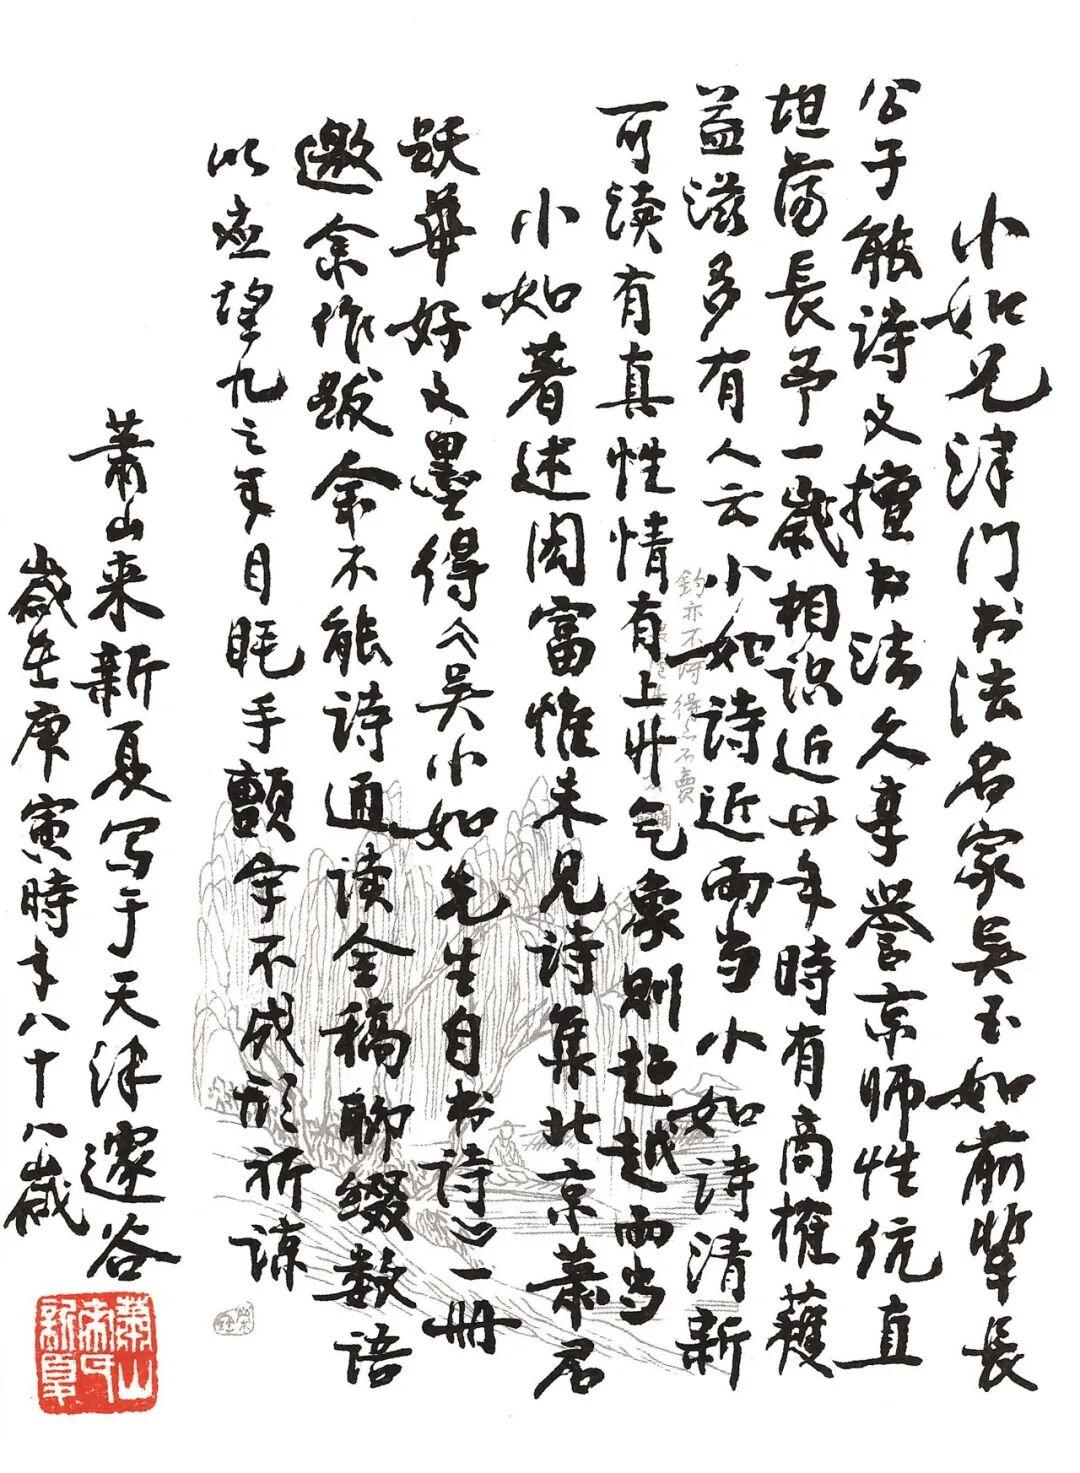 小如兄津门书法名家吴玉如前辈长
公子能诗文擅书法久享誉京师性伉直
坦荡長予一歲相识近廿年時有商榷获
益滋多有人云小如诗近两当小如诗清新
可读有真性情有上升气象则超越两当
小如著述闳富惟未見诗集北京萧君
跃華好文墨得《吴小如先生自书诗》一册
邀余作跋余不能诗通读全稿聊缀数语
以应望九之年目眊手颤字不成形祈谅
萧山来新夏写于天津邃谷
歲在庚寅時年八十八歲
萧山来新夏章
钓亦不得得亦不賣